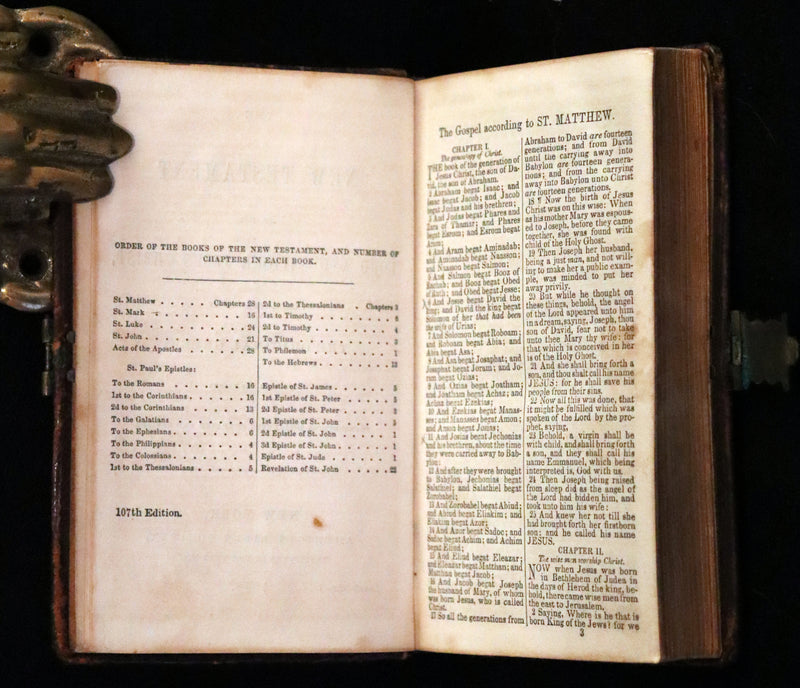 ORDER OF THE BOOKS OF THE NEW TESTAMENT, AND NUMBER OF
CHAPTERS IN EACH BOOK.
St. Matthew . . . . . Chapters 28
St. Mark . . . . . . . 16
St. Luke . . . . . . . 24
St. John . . . . . . . 21
Acts of the Apostles . . . . . 28
St. Paul's Epistles:
To the Romans . . . . . . 16
1st to the Corinthians . . . . . 16
2d to the Corinthians . . . . . 13
To the Galatians . . . . . . 6
To the Ephesians . . . . . . 6
To the Philippians . . . . . . 4
To the Colossians . . . . . . 4
1st to the Thessalonians . . . . . 5
2d to the Thessalonians . Chapters 3
1st to Timothy . . . . . . 6
2d to Timothy . . . . . . 4
To Titus . . . . . . . 3
To Philemon . . . . . . 1
To the Hebrews . . . . . . 13
Epistle of St. James . . . . . 5
1st Epistle of St. Peter . . . . . 5
2d Epistle of St. Peter . . . . . 3
1st Epistle of St. John . . . . . 5
2d Epistle of St. John . . . . . 1
3d Epistle of St. John . . . . . 1
Epistle of St. Jude . . . . . 1
Revelation of St. John . . . . . 22
107th Edition.
The Gospel according to ST. MATTHEW.
CHAPTER I.
The genealogy of Christ.
THE book of the generation of
Jesus Christ, the son of Da-
vid, the son of Abraham.
2 Abraham begat Isaac; and
Isaac begat Jacob; and Jacob
begat Judas and his brethren;
3 And Judas begat Phares and
Zara of Thamar; and Phares
begat Esrom; and Esrom begat
Aram;
4 And Aram begat Aminadab;
and Aminadab begat Naasson;
and Naasson begat Salmon;
5 And Salmon begat Booz of
Rachab; and Booz begat Obed
of Ruth; and Obed begat Jesse;
6 And Jesse begat David the
king; and David the king begat
Solomon of her that had been
the wife of Urias;
7 And Solomon begat Roboam;
and Roboam begat Abia; and
Abia begat Asa;
8 And Asa begat Josaphat; and
Josaphat begat Joram; and Jo-
ram begat Ozias;
9 And Ozias begat Joatham;
and Joatham begat Achaz; and
Achaz begat Ezekias;
10 And Ezekias begat Manas-
ses; and Manasses begat Amon;
and Amon begat Josias;
11 And Josias begat Jechonias
and his brethren, about the time
they were carried away to Bab-
ylon:
12 And after they were brought
to Babylon, Jechonias begat
Salathiel; and Salathiel begat
Zorobabel;
13 And Zorobabel begat Abiud;
and Abiud begat Eliakim; and
Eliakim begat Azor;
14 And Azor begat Sadoc; and
Sadoc begat Achim; and Achim
begat Eliud;
15 And Eliud begat Eleazar;
and Eleazar begat Matthan; and
Matthan begat Jacob;
16 And Jacob begat Joseph
the husband of Mary, of whom
was born Jesus, who is called
Christ.
17 So all the generations from
Abraham to David are fourteen
generations; and from David
until the carrying away into
Babylon are fourteen genera-
tions; and from the carrying
away into Babylon unto Christ
are fourteen generations.
18 ¶ Now the birth of Jesus
Christ was on this wise: When
as his mother Mary was espous-
ed to Joseph, before they came
together, she was found with
child of the Holy Ghost.
19 Then Joseph her husband,
being a just man, and not will-
ing to make her a public exam-
ple, was minded to put her
away privily.
20 But while he thought on
these things, behold, the angel
of the Lord appeared unto him
in a dream, saying, Joseph, thou
son of David, fear not to take
unto thee Mary thy wife: for
that which is conceived in her
is of the Holy Ghost.
21 And she shall bring forth a
son, and thou shalt call his name
JESUS: for he shall save his
people from their sins.
22 Now all this was done, that
it might be fulfilled which was
spoken of the Lord by the pro-
phet, saying,
23 Behold, a virgin shall be
with child, and shall bring forth
a son, and they shall call his
name Emmanuel, which being
interpreted is, God with us.
24 Then Joseph being raised
from sleep did as the angel of
the Lord had bidden him, and
took unto him his wife:
25 And knew her not till she
had brought forth her firstborn
son: and he called his name
JESUS.
CHAPTER II.
The wise men worship Christ.
NOW when Jesus was born
in Bethlehem of Judea in
the days of Herod the king, be-
hold, there came wise men from
the east to Jerusalem,
2 Saying, Where is he that is
born King of the Jews? for we
3